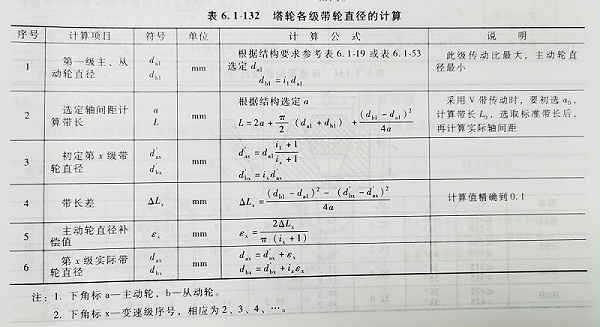 表 6.1-132 塔轮各级带轮直径的计算
序号 计算项目 符号 单位 计算公式 说明
1 第一级主、从动轮直径 d_{a1} d_{b1} mm 根据结构要求参考表 6.1-19 或表 6.1-53 选定 d_{a1} d_{b1} = i_1 d_{a1} 此级传动比最大，主动轮直径最小
2 选定轴间距计算带长 a L mm 根据结构选定 a L = 2a + \frac{π}{2} (d_{a1} + d_{b1}) + \frac{(d_{b1} - d_{a1})^2}{4a} 采用 V 带传动时，要初选 a_0，计算带长 L_0，选取标准带长后，再计算实际轴间距
3 初定第 x 级带轮直径 d'_{ax} d'_{bx} mm d'_{ax} = d_{a1} \frac{i_1 + 1}{i_x + 1} d'_{bx} = i_x d'_{ax}
4 带长差 ΔL_x mm ΔL_x = \frac{(d_{b1} - d_{a1})^2 - (d'_{bx} - d'_{ax})^2}{4a} 计算值精确到 0.1
5 主动轮直径补偿值 ε_x mm ε_x = \frac{2ΔL_x}{π (i_x + 1)}
6 第 x 级实际带轮直径 d_{ax} d_{bx} mm d_{ax} = d'_{ax} + ε_x d_{bx} = d'_{bx} + i_x ε_x
注：1. 下角标 a—主动轮，b—从动轮。
2. 下角标 x—变速级序号，相应为 2、3、4、…。